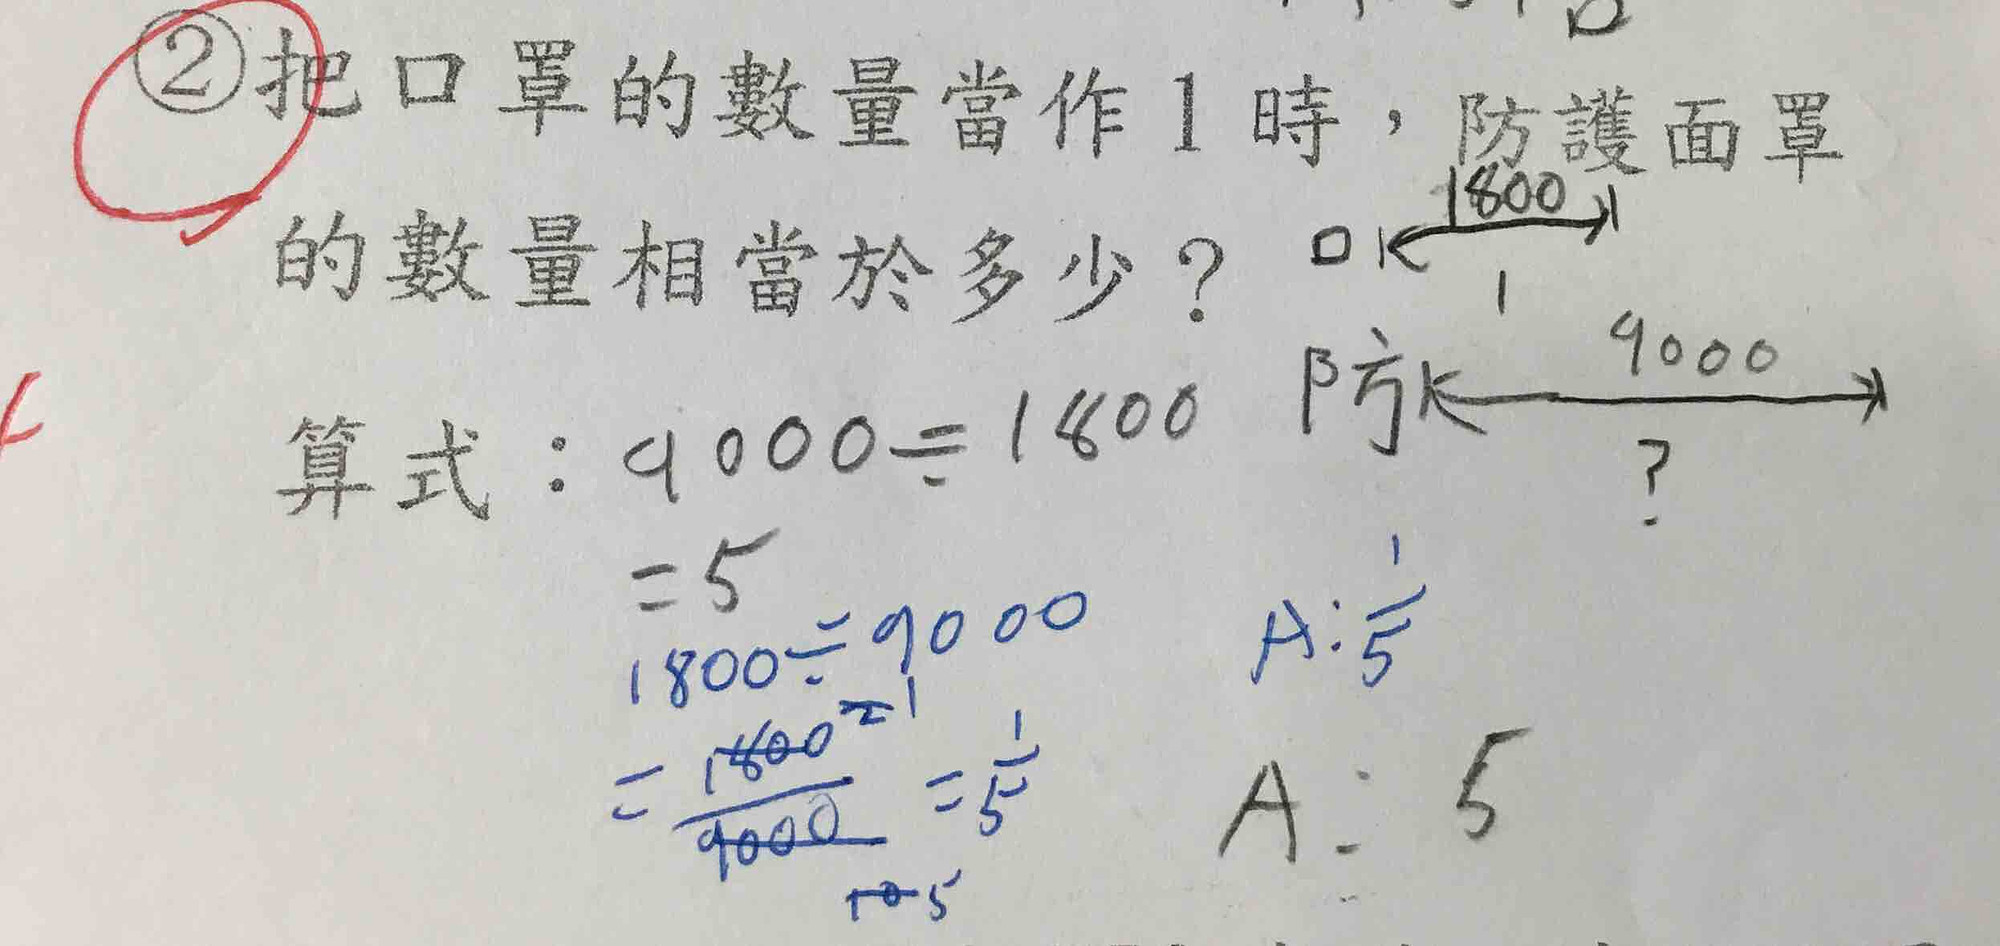 ②把口罩的數量當作1時，防護面罩
的數量相當於多少？
口 1800
1
防 9000
?
算式：9000÷1800
=5
1800÷9000
A:1/5
=1800/9000=1/5
2 1
10 5
A：5